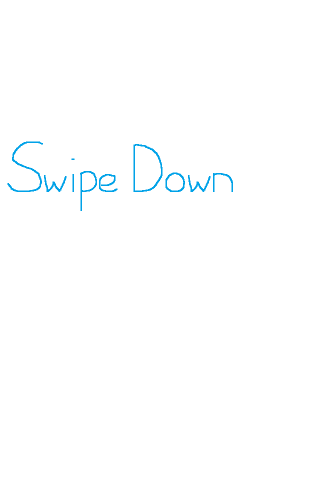 Swipe Down